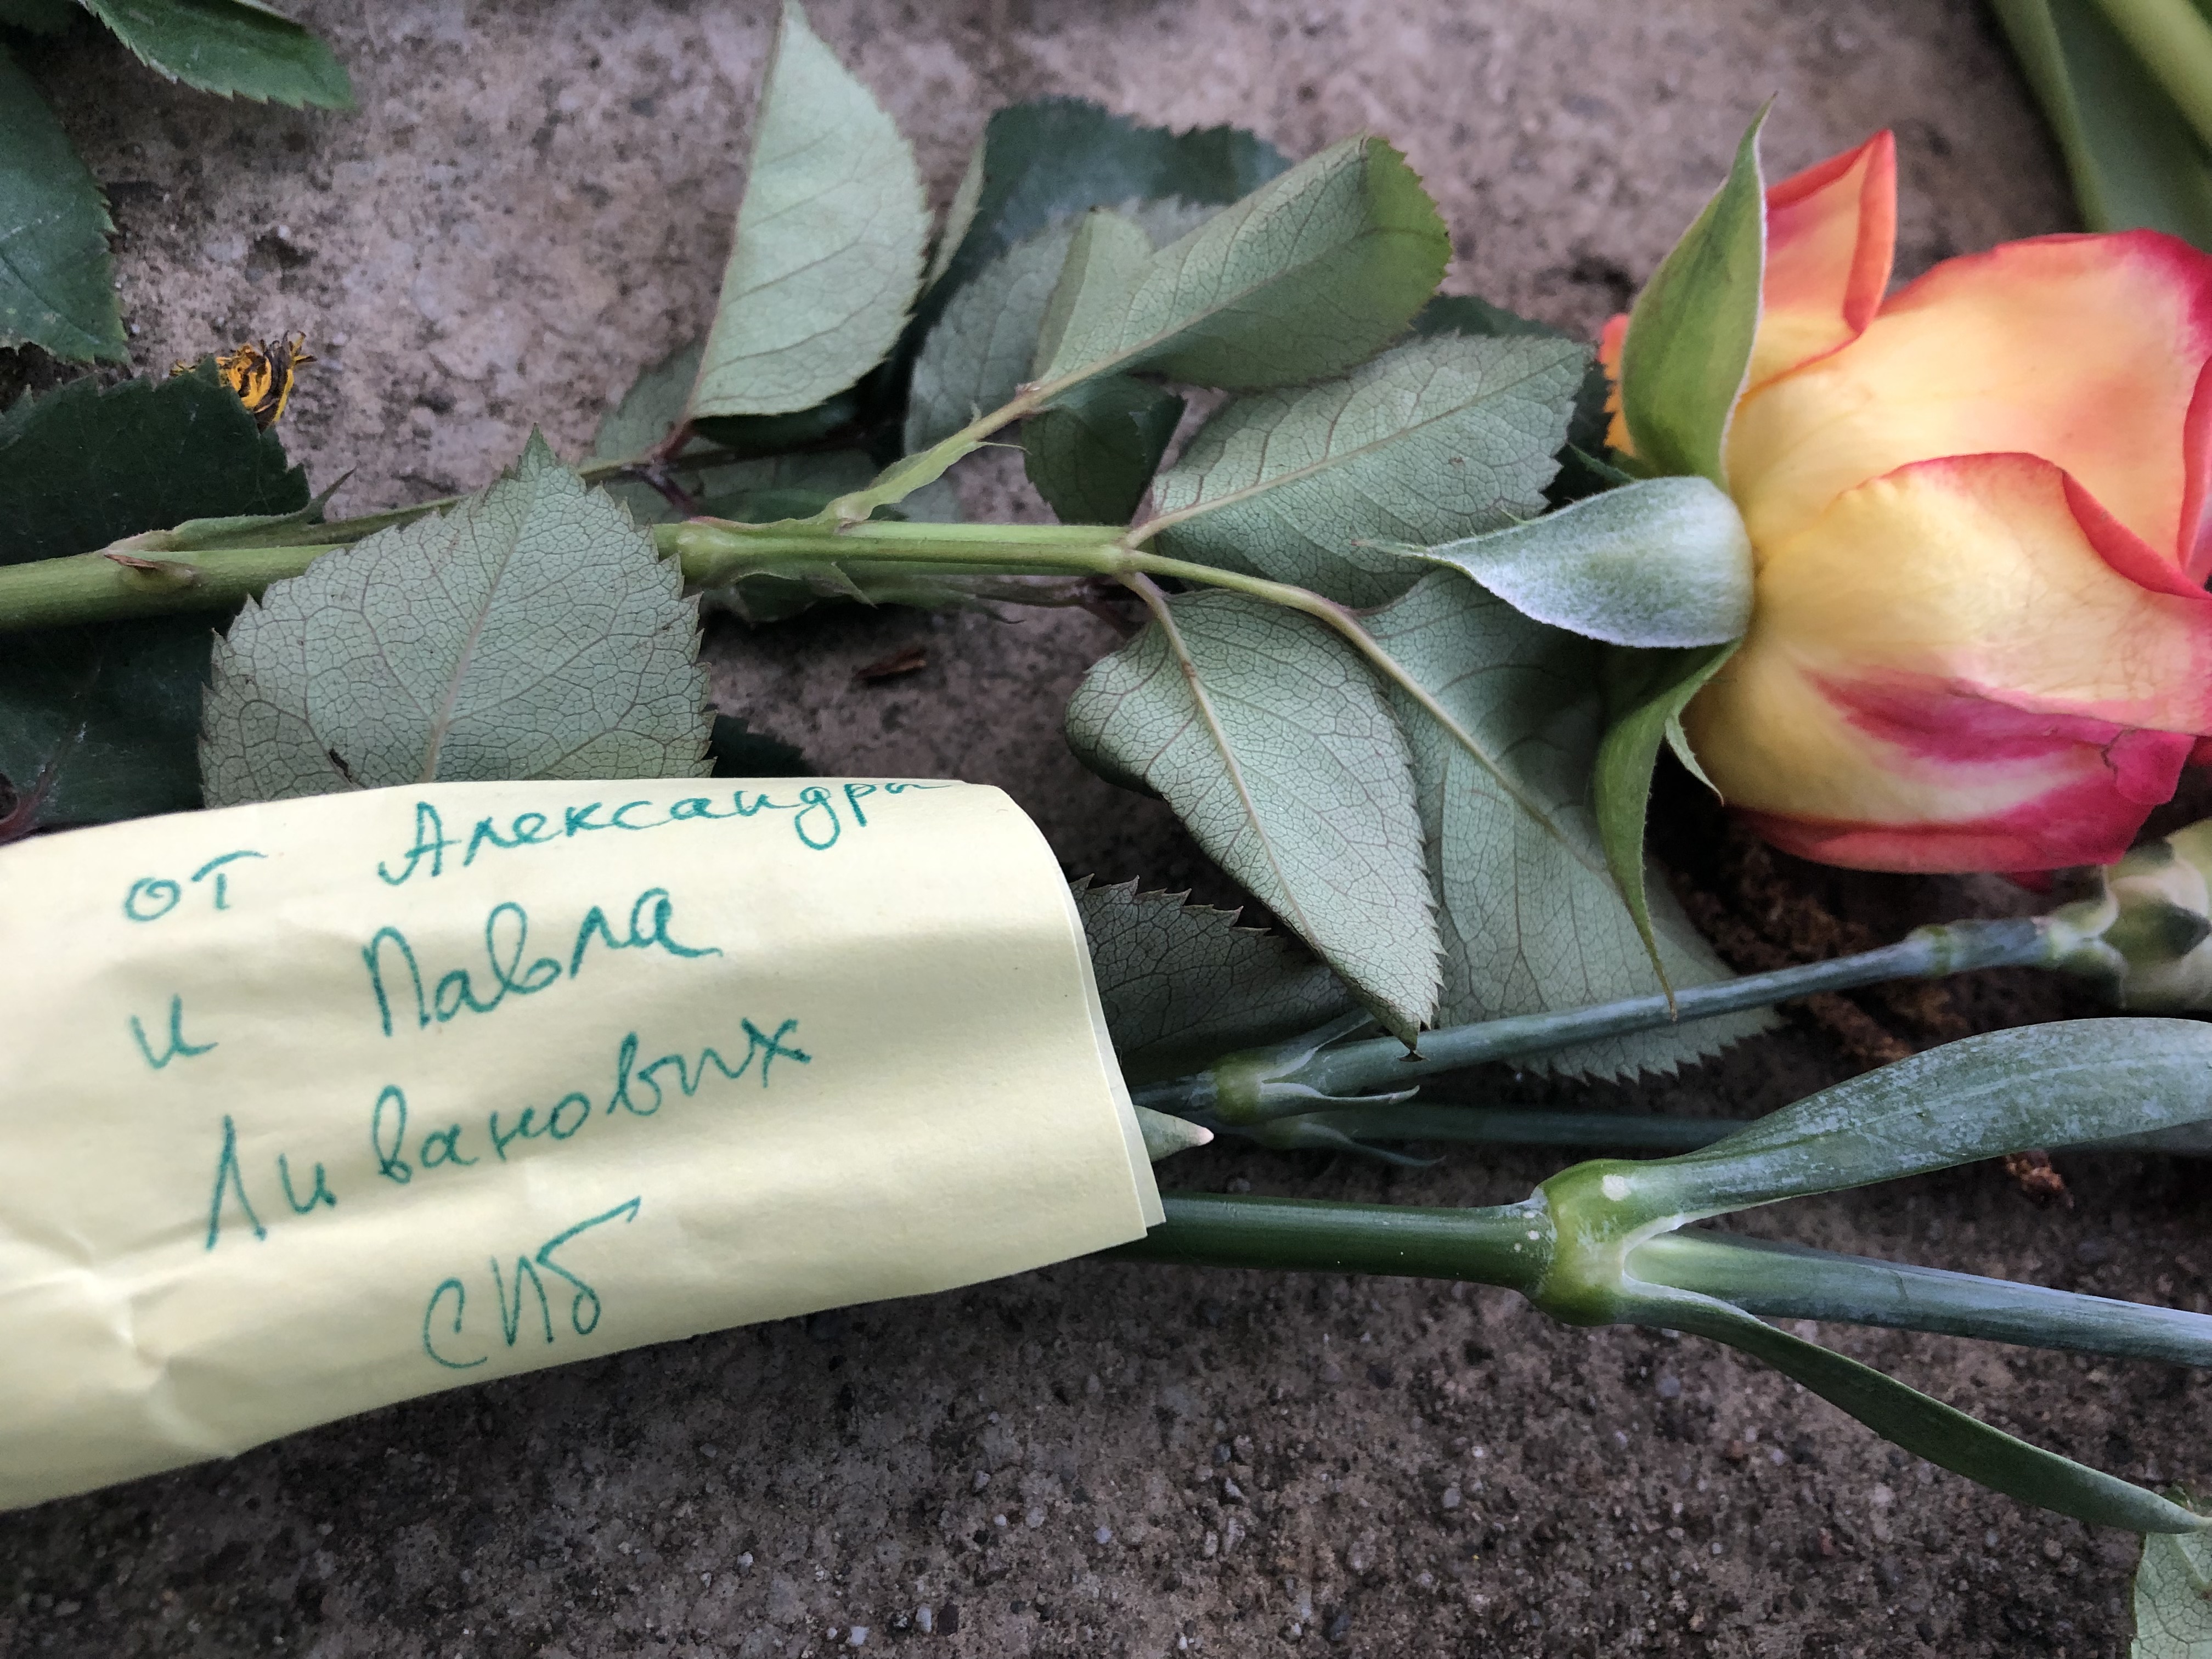 от Александры
и Павла
Ливановых
СПб